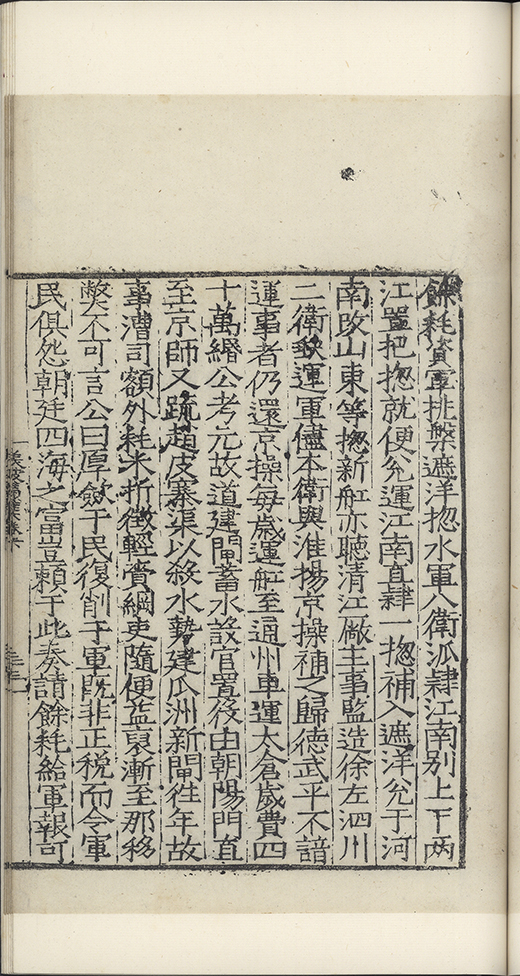 餘耗資軍挑盤遮洋揔水軍八衛派隷江南別上下兩
江置把揔就便兊運江南直隷一揔補入遮洋兊于河
南改山東等揔新舡亦聽清江厰主事監造徐左泗川
二衛缺運軍儘本衛與淮揚京操補之歸德武平不諳
運事者仍還京操每歲運舡至通州車運太倉歲費四
十萬緡公考元故道建閘蓄水設官置役由朝陽門直
至京師又疏趙皮寨渠以殺水勢建瓜洲新閘徃年故
事漕司額外耗米折徵輕賫綱吏隨便盜裒漸至那移
獘不可言公曰厚斂于民復削于軍旣非正稅而令軍
民俱怨朝廷四海之富豈賴于此奏請餘耗給軍報可